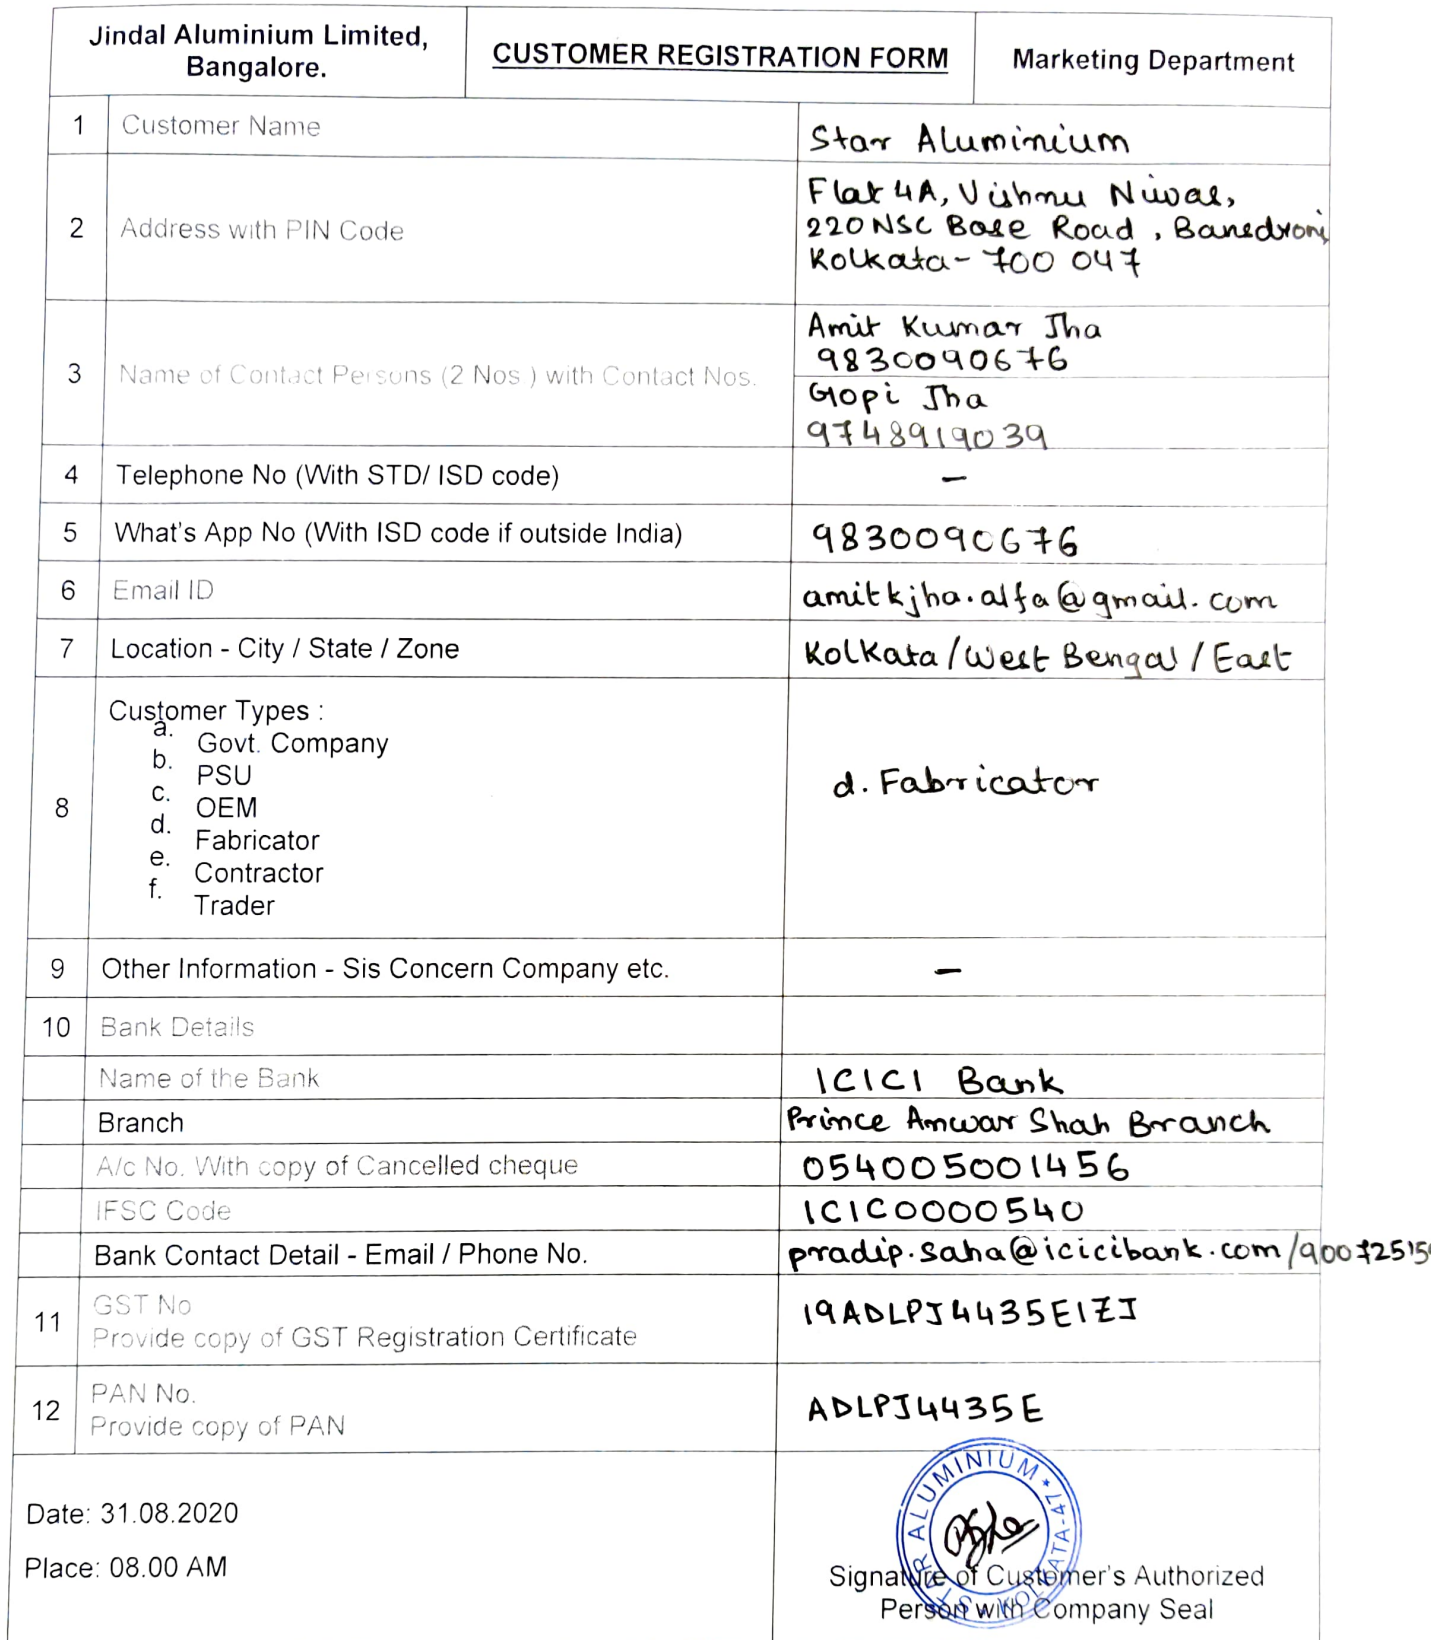 Jindal Aluminium Limited,
Bangalore.
CUSTOMER REGISTRATION FORM
Marketing Department
1 Customer Name
Star Aluminium
2 Address with PIN Code
Flat 4A, Vishnu Niwas,
220 NSC Bose Road, Bansdroni
Kolkata - 700 047
3 Name of Contact Persons (2 Nos.) with Contact Nos.
Amit Kumar Jha
9830090676
Gopi Jha
9748919039
4 Telephone No (With STD/ ISD code) -
5 What's App No (With ISD code if outside India) 9830090676
6 Email ID amitkjha.alfa@gmail.com
7 Location - City / State / Zone Kolkata / West Bengal / East
8 Customer Types :
a. Govt. Company
b. PSU
c. OEM
d. Fabricator
e. Contractor
f. Trader
d. Fabricator
9 Other Information - Sis Concern Company etc. -
10 Bank Details
Name of the Bank ICICI Bank
Branch Prince Anwar Shah Branch
A/c No. With copy of Cancelled cheque 054005001456
IFSC Code ICIC0000540
Bank Contact Detail - Email / Phone No. pradip.saha@icicibank.com /
11 GST No
Provide copy of GST Registration Certificate
19ADLPJ4435E1ZJ
12 PAN No.
Provide copy of PAN
ADLPJ4435E
Date: 31.08.2020
Place: 08.00 AM
STAR ALUMINIUM * KOLKATA-47
Signature of Customer's Authorized
Person with Company Seal